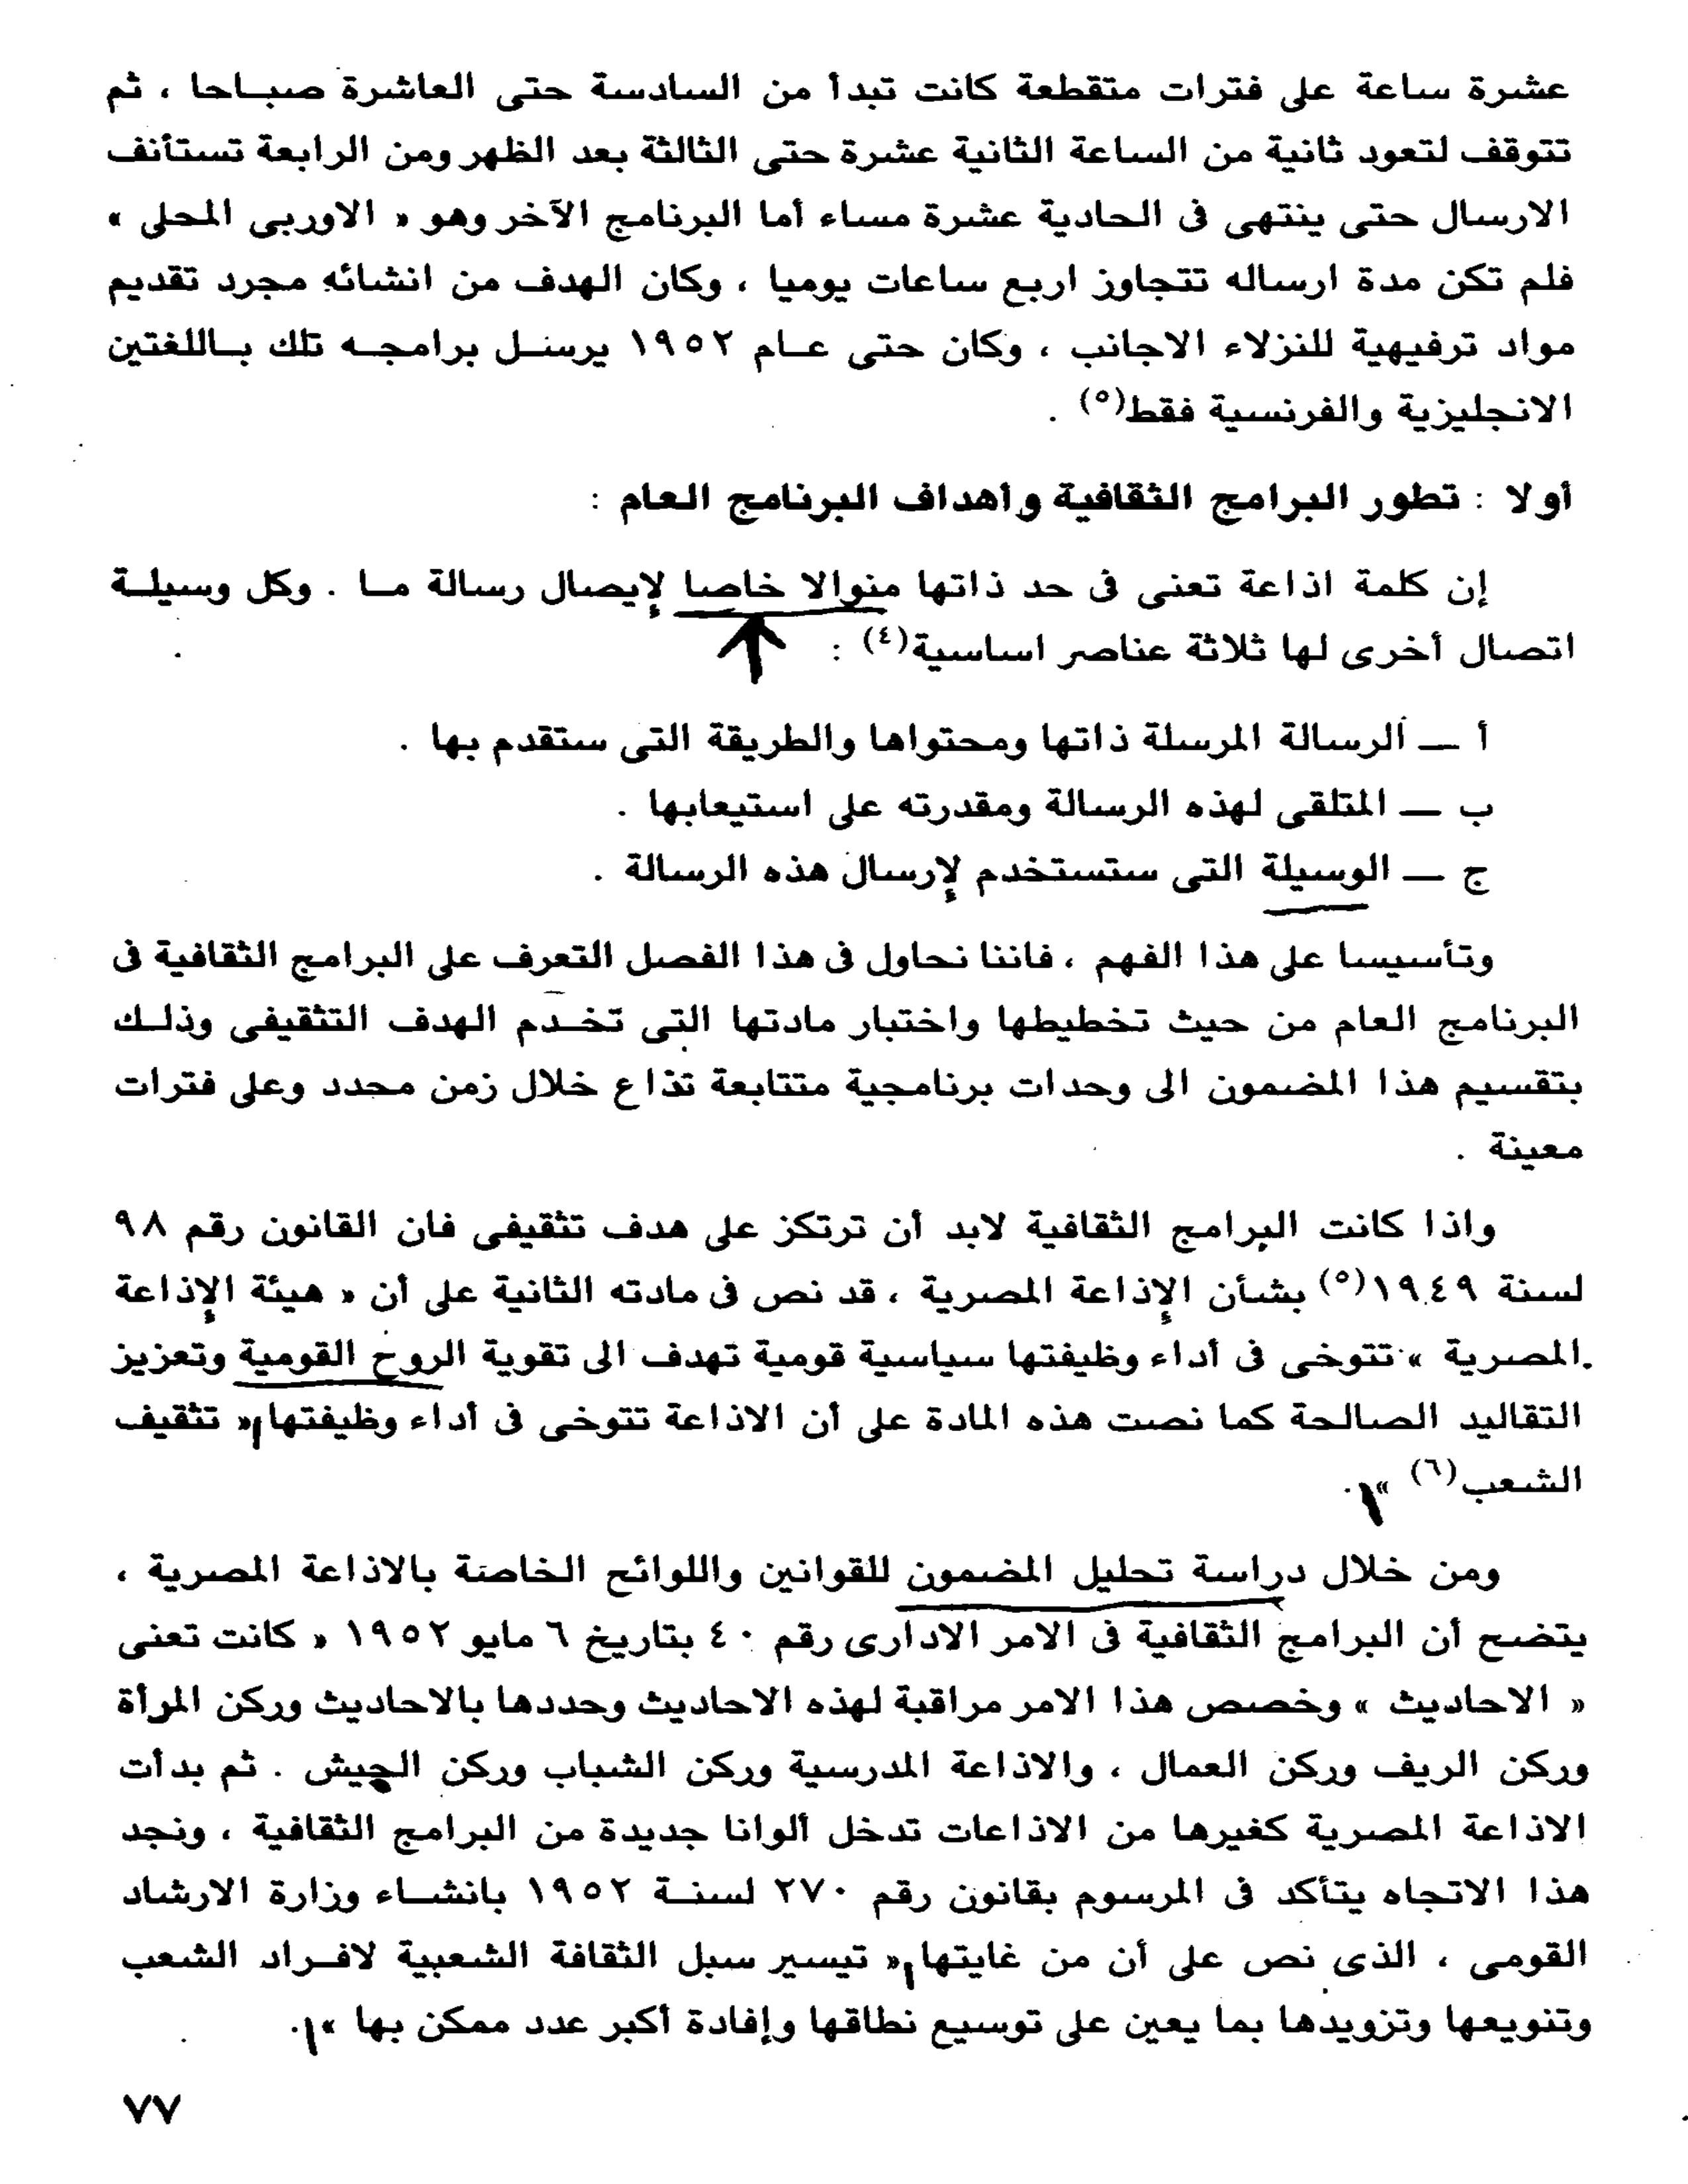 عشرة ساعة على فترات متقطعة كانت تبدأ من السادسة حتى العاشرة صباحا ، ثم
تتوقف لتعود ثانية من الساعة الثانية عشرة حتى الثالثة بعد الظهر ومن الرابعة تستأنف
الارسال حتى ينتهى فى الحادية عشرة مساء أما البرنامج الآخر وهو « الاوربى المحلى »
فلم تكن مدة ارساله تتجاوز اربع ساعات يوميا ، وكان الهدف من انشائه مجرد تقديم
مواد ترفيهية للنزلاء الاجانب ، وكان حتى عام ١٩٥٢ يرسل برامجه تلك باللغتين
الانجليزية والفرنسية فقط(٥) .
أولا : تطور البرامج الثقافية وأهداف البرنامج العام :
إن كلمة اذاعة تعنى فى حد ذاتها منوالا خاصا لإيصال رسالة ما . وكل وسيلة
اتصال أخرى لها ثلاثة عناصر اساسية(٤) :
أ — الرسالة المرسلة ذاتها ومحتواها والطريقة التى ستقدم بها .
ب — المتلقى لهذه الرسالة ومقدرته على استيعابها .
ج — الوسيلة التى ستستخدم لإرسال هذه الرسالة .
وتأسيسا على هذا الفهم ، فاننا نحاول فى هذا الفصل التعرف على البرامج الثقافية فى
البرنامج العام من حيث تخطيطها واختبار مادتها التى تخدم الهدف التثقيفى وذلك
بتقسيم هذا المضمون الى وحدات برنامجية متتابعة تذاع خلال زمن محدد وعلى فترات
معينة .
واذا كانت البرامج الثقافية لابد أن ترتكز على هدف تثقيفى فان القانون رقم ٩٨
لسنة ١٩٤٩(٥) بشأن الإذاعة المصرية ، قد نص فى مادته الثانية على أن « هيئة الإذاعة
المصرية » تتوخى فى أداء وظيفتها سياسية قومية تهدف الى تقوية الروح القومية وتعزيز
التقاليد الصالحة كما نصت هذه المادة على أن الاذاعة تتوخى فى أداء وظيفتها « تثقيف
الشعب(٦) » .
ومن خلال دراسة تحليل المضمون للقوانين واللوائح الخاصة بالاذاعة المصرية ،
يتضح أن البرامج الثقافية فى الامر الادارى رقم ٤٠ بتاريخ ٦ مايو ١٩٥٢ « كانت تعنى
« الاحاديث » وخصص هذا الامر مراقبة لهذه الاحاديث وحددها بالاحاديث وركن المرأة
وركن الريف وركن العمال ، والاذاعة المدرسية وركن الشباب وركن الجيش . ثم بدأت
الاذاعة المصرية كغيرها من الاذاعات تدخل ألوانا جديدة من البرامج الثقافية ، ونجد
هذا الاتجاه يتأكد فى المرسوم بقانون رقم ٢٧٠ لسنة ١٩٥٢ بانشاء وزارة الارشاد
القومى ، الذى نص على أن من غايتها « تيسير سبل الثقافة الشعبية لافراد الشعب
وتنويعها وتزويدها بما يعين على توسيع نطاقها وإفادة أكبر عدد ممكن بها » .
٧٧